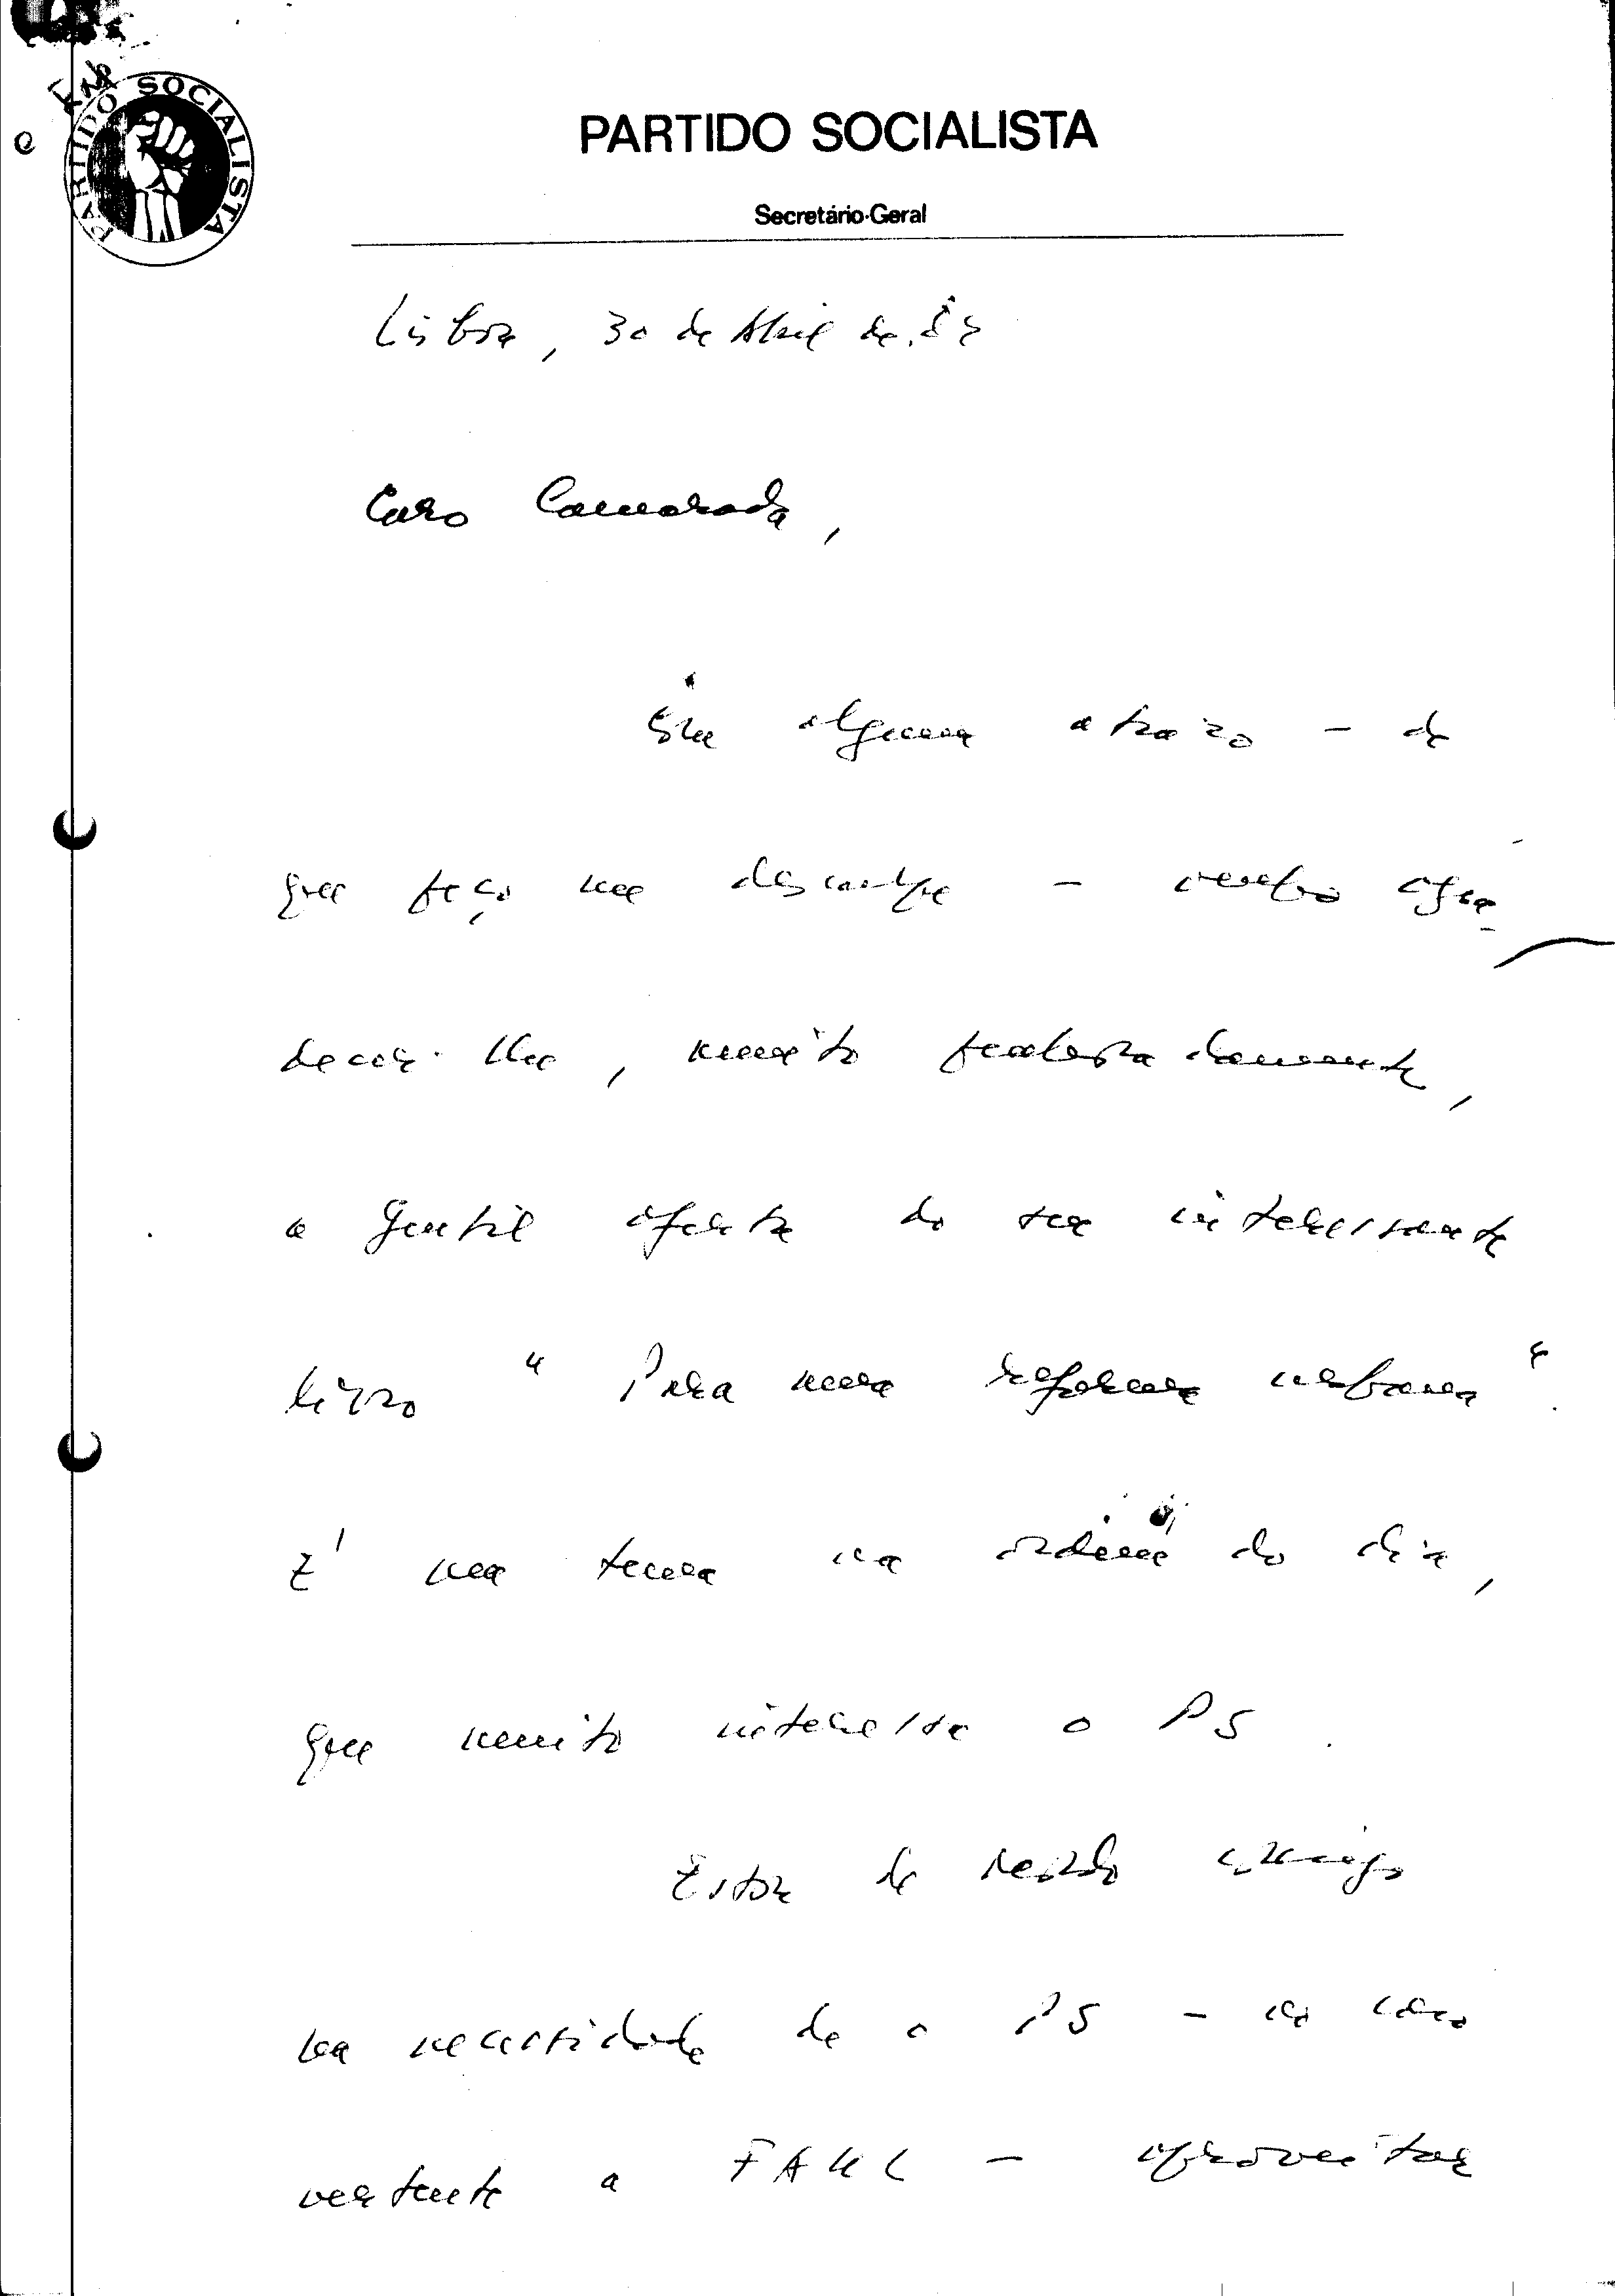 PARTIDO SOCIALISTA
PARTIDO SOCIALISTA
Secretário-Geral
Lisboa, 30 de Abril de
Caro Camarada,
Com algum atrazo - de
que peço me desculpe - venho agra-
decer-lhe, muito penhoradamente,
a gentil oferta do seu interessante
livro "Para uma reforma urbana".
E' um tema na ordem do dia,
que muito interessa o PS.
Estou de acordo consigo
na necessidade de o PS - no caso
vertente a FAUL - aproveitar